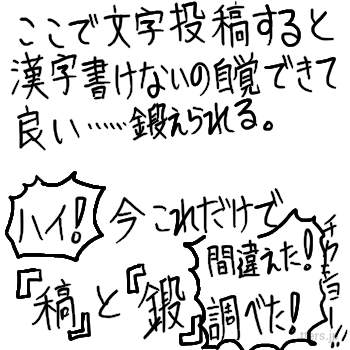 ここで文字投稿すると
漢字書けないの自覚できて
良い……鍛えられる。
ハイ!
今これだけで
『稿』と『鍛』
間違えた!
調べた!
チクショー!!